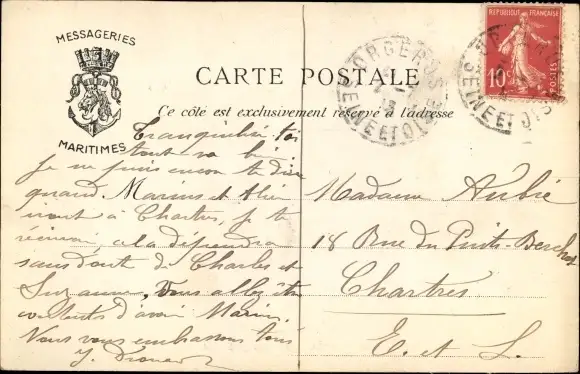 MESSAGERIES
MARITIMES
CARTE POSTALE
Ce côté est exclusivement réservé à l'adresse
REPUBLIQUE FRANÇAISE
10c
POSTES
ORGERUS
SEINE ET OISE
ORGERUS
SEINE ET OISE
Tranquilise toi
tout va bien
Je ne puis encore te dire
quand Marius et
iront à Chartres, je te
, cela dépendra
sans doute de Charles et
Suzanne, Vous allez être
contents d'avoir Marius.
Nous vous embrassons tous
Madame Aubié
18 Rue du Puits-Berchot
Chartres
E. et L.